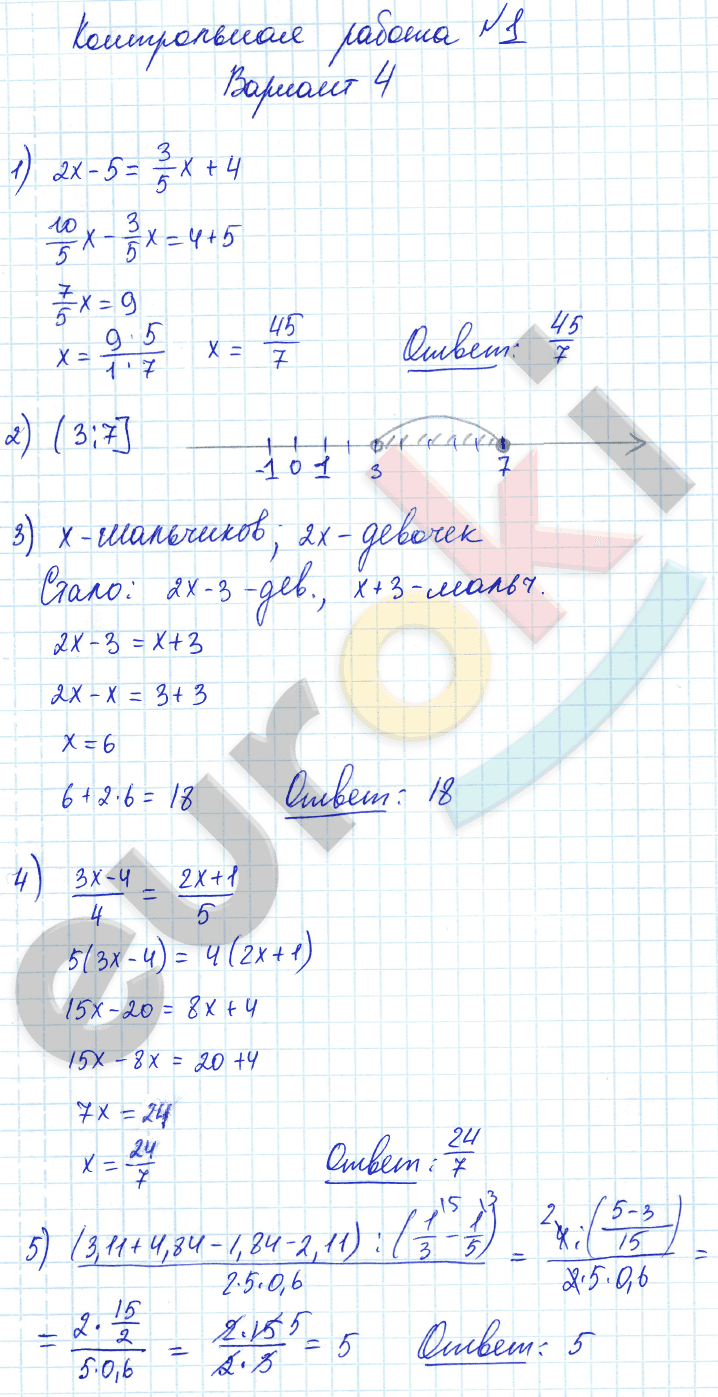 Контрольная работа №1
Вариант 4
1) 2x - 5 = 3/5 x + 4
10/5 x - 3/5 x = 4 + 5
7/5 x = 9
x = 9·5/1·7 x = 45/7 Ответ: 45/7
2) (3;7] -1 0 1 3 7
3) x - мальчиков; 2x - девочек
Стало: 2x - 3 - дев., x + 3 - мальч.
2x - 3 = x + 3
2x - x = 3 + 3
x = 6
6 + 2·6 = 18 Ответ: 18
4) 3x-4/4 = 2x+1/5
5(3x - 4) = 4(2x + 1)
15x - 20 = 8x + 4
15x - 8x = 20 + 4
7x = 24
x = 24/7 Ответ: 24/7
5) (3,11 + 4,84 - 1,84 - 2,11) : (1/3\5 - 1/5\3) / 2·5·0,6 = 2 4 : (5-3/15) / 2·5·0,6 =
= 2·15/2 / 5·0,6 = 2·15 5 / 2·3 = 5 Ответ: 5
euroki